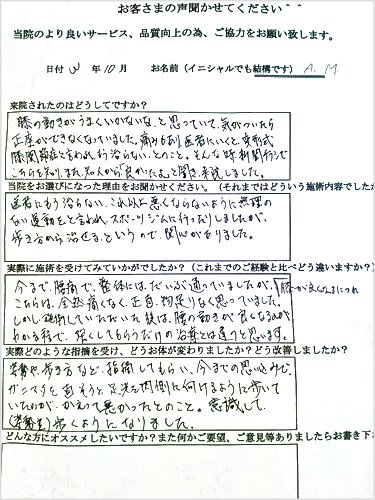 お客さまの声聞かせてください＾＾
当院のより良いサービス、品質向上の為、ご協力をお願い致します。
日付 年 10月 お名前（イニシャルでも結構です） A. M.
来院されたのはどうしてですか？
膝の動きがうまくいかないな、と思っていて、気がついたら
正座ができなくなっていました。痛みもあり、医者にいくと、変形式
膝関節症と言われ、もう治らない、とのこと。そんな時、新聞チラシで
こちらを知り、また、知人から「良かったよ」と聞き、来院しました。
当院をお選びになった理由をお聞かせください。（それまではどういう施術内容でした
医者にもう治らない、これ以上悪くならないように無理の
ない運動をと言われ、スポーツジムに行ったりしましたが、
歩き方から治せる、というので、関心がありました。
実際に施術を受けてみていかがでしたか？（これまでのご経験と比べどう違いますか？）
今まで、腰痛で、整体にはだいぶ通っていましたが、
こちらは、全然痛くなく、正直、物足りなく思っていました。
しかし施術していただいた後は、腰の動きが良くなるのが
わかる程で、強くしてもらうだけの治療とは違うと思います。
膝が良くなるにつれ
実際どのような指摘を受け、どうお体が変わりましたか？どう改善しましたか？
姿勢や、歩き方など、指摘してもらい、今までの思い込みで、
ガニマタを直そうと足先を内側に向けるように歩いて
いたのが、かえって悪かったとのこと。意識して、
歩くようになりました。
どんな方にオススメしたいですか？また何かご要望、ご意見等ありましたらお書き下